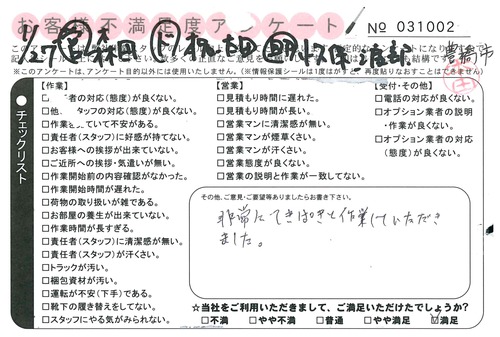 お客様不満足度アンケート
No 031002
1/27
豊橋市
※このアンケートは、アンケート目的以外には使用いたしません。(※情報保護シールは1度はがすと、再度貼りなおすことはできません)
チェックリスト
【作業】
者の対応(態度)が良くない。
□他 タッフの対応(態度)が良くない。
□作業をしていて不安がある。
□責任者(スタッフ)に好感が持てない。
□お客様への挨拶が出来ていない。
□ご近所への挨拶・気遣いが無い。
□作業開始前の内容確認がなかった。
□作業開始時間が遅れた。
□荷物の取り扱いが雑である。
□お部屋の養生が出来ていない。
□作業時間が長すぎる。
□責任者(スタッフ)に清潔感が無い。
□責任者(スタッフ)が汗くさい。
□トラックが汚い。
□梱包資材が汚い。
□運転が不安(下手)である。
□靴下の履き替えをしてない。
□スタッフにやる気がみられない。
【営業】
□見積もり時間に遅れた。
□見積もり時間が長い。
□営業マンに清潔感が無い。
□営業マンが煙草くさい。
□営業マンが汗くさい。
□営業態度が良くない。
□営業の説明と作業が一致してない。
【受付・その他】
□電話の対応が良くない。
□オプション業者の説明
・作業が良くない。
□オプション業者の対応
(態度)が良くない。
その他、ご意見・ご要望等ありましたらお書き下さい。
非常にてきぱきと作業していただき
ました。
☆当社をご利用いただきまして、ご満足いただけたでしょうか?
□不満 □やや不満 □普通 □やや満足 ☑満足